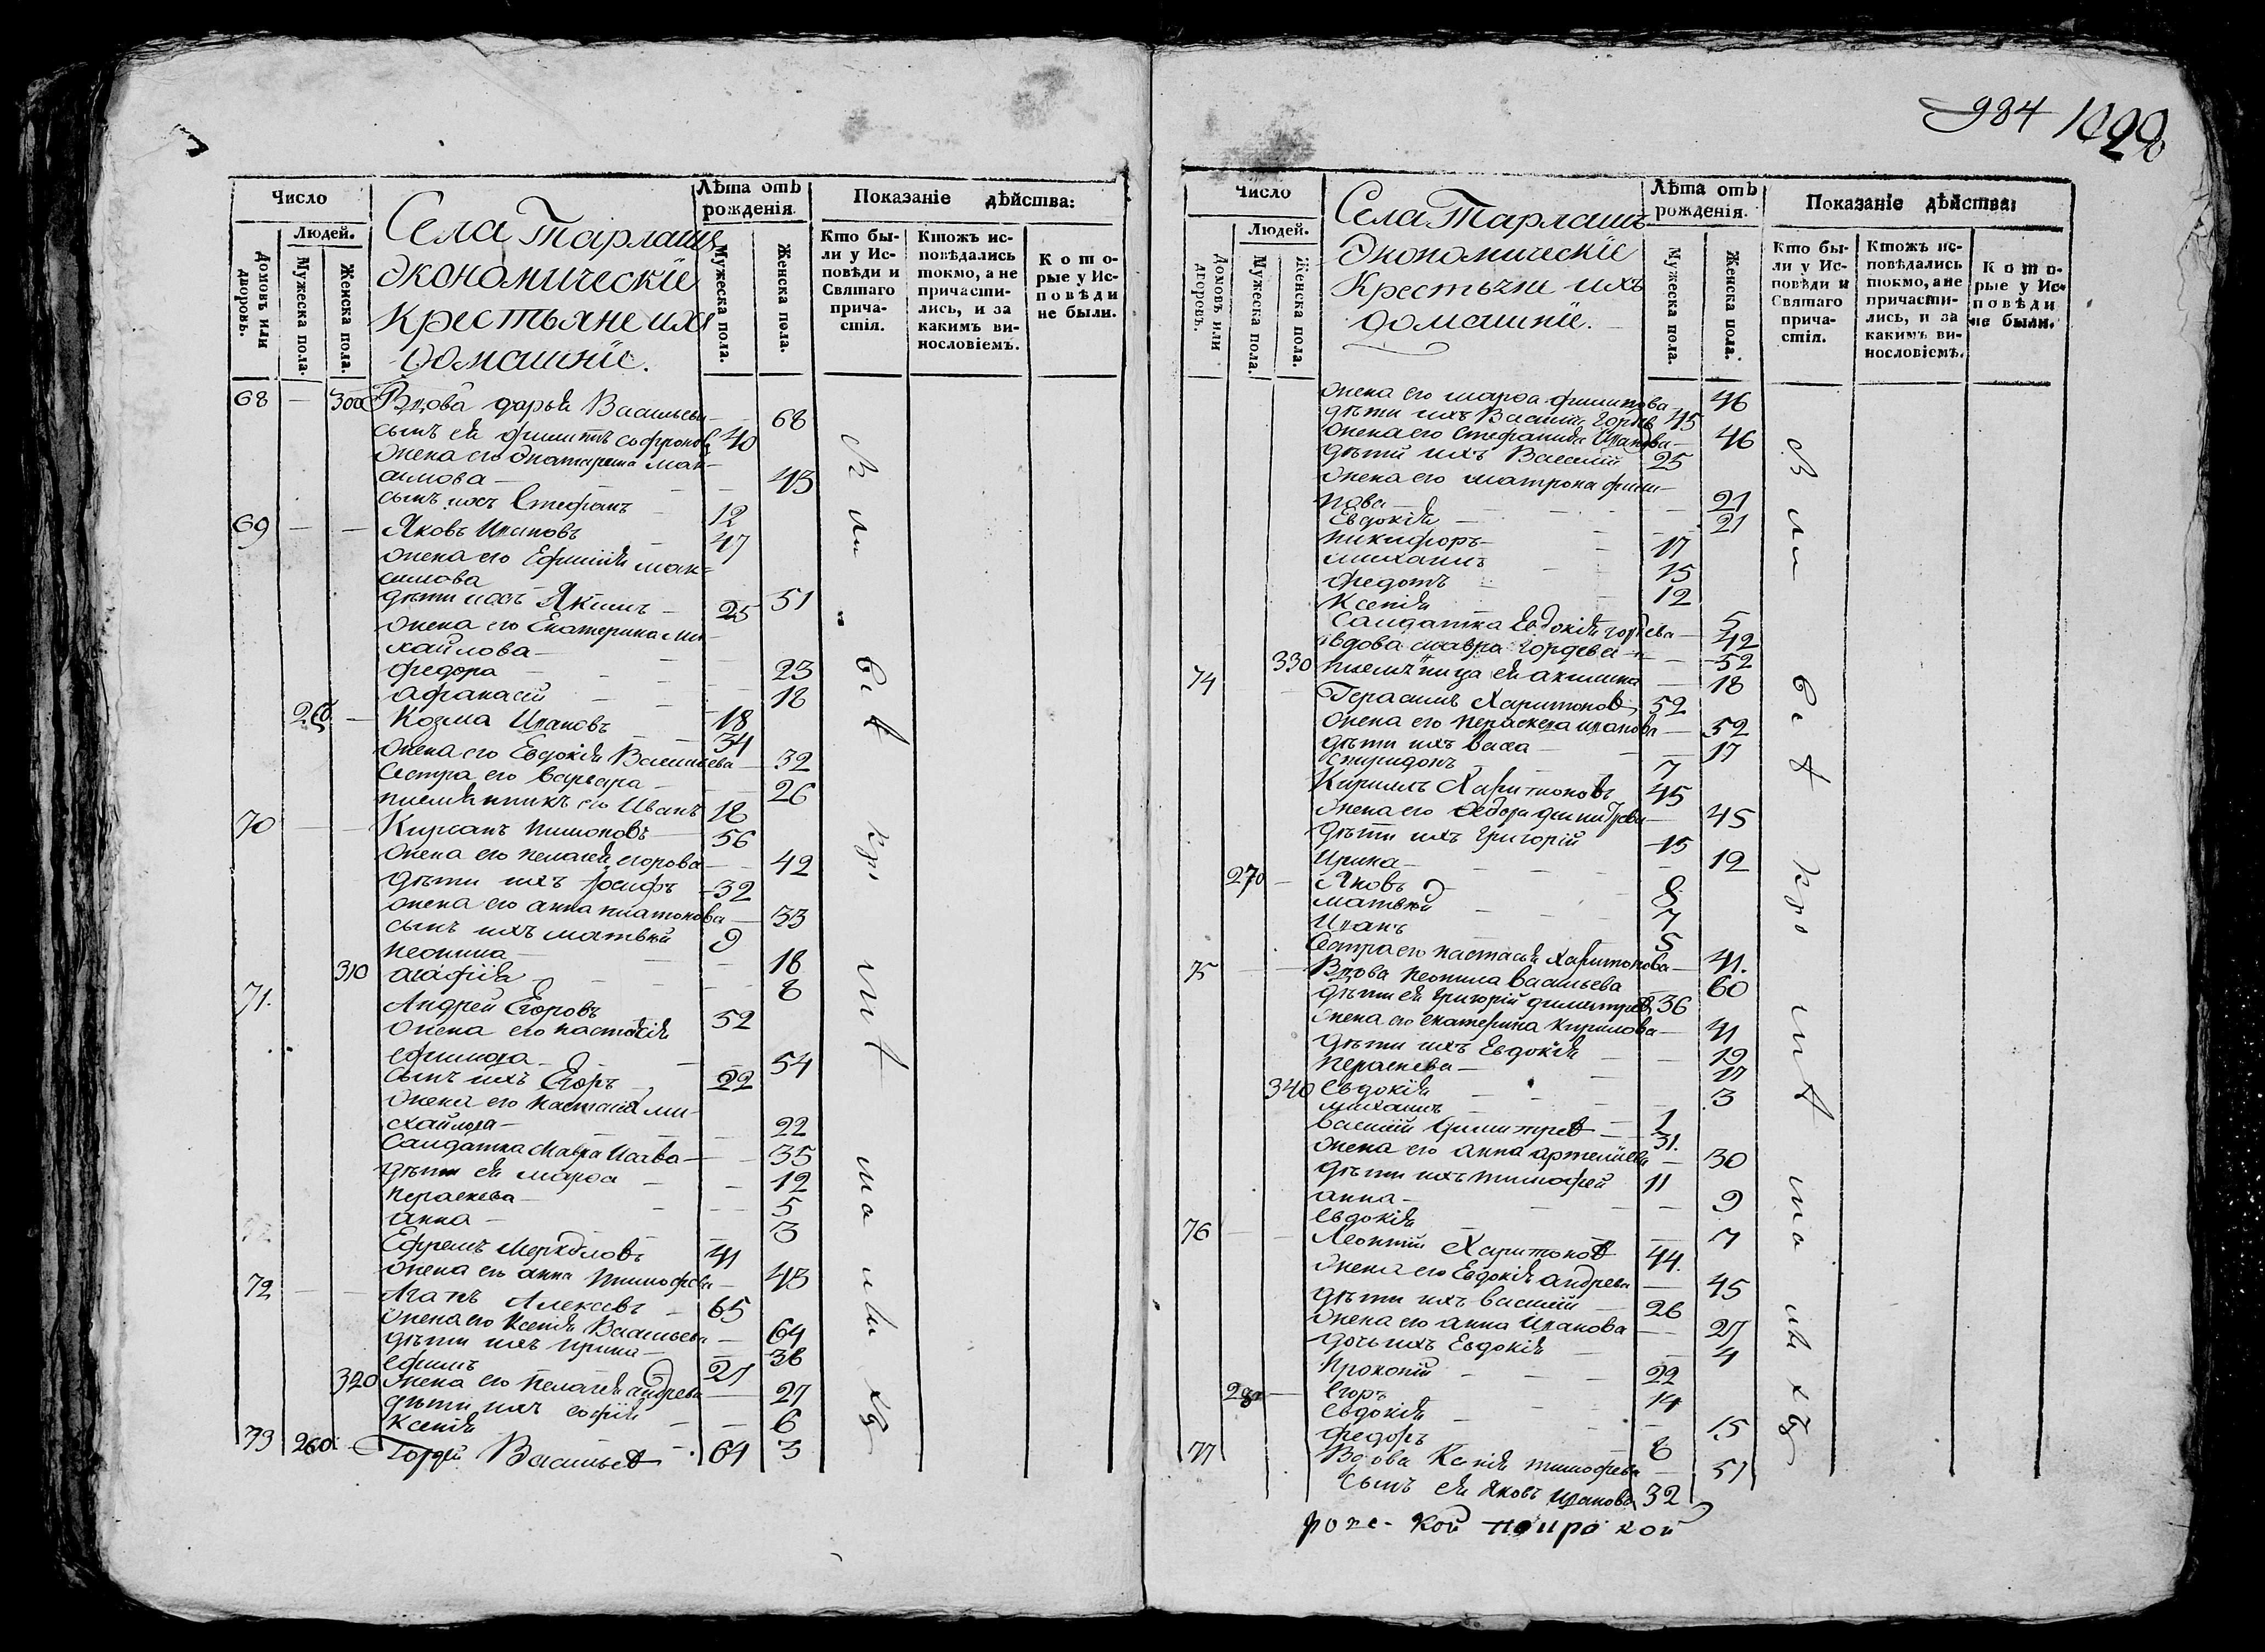 984 1028
Число
Лѣта отъ рожденія.
Показаніе дѣйства:
Людей.
Домовъ или дворовъ.
Мужеска пола.
Женска пола.
Села Тарлашъ
Экономическіе
Крестьяне ихъ
домашніе.
Мужеска пола.
Женска пола.
Кто бы-
ли у Ис-
повѣди и
Святаго
прича-
стія.
Ктожъ ис-
повѣдались
токмо, а не
причасти-
лись, и за
какимъ ви-
нословіемъ.
Кото-
рые у Ис-
повѣди
не были.
68 — 300 Вдова дарья Васильева 68
сынъ ея филиппъ софронов 40
жена его екатерина мак-
симова — 43
сынъ ихъ Стефанъ 12
69 — — Яковъ Ивановъ 47
жена его Ефимія мак-
симова 51
дѣти ихъ Якимъ — 25
жена его Екатерина Ми-
хайлова — 23
федора 18
афанасій 18
Козма Ивановъ 34
жена его Евдокія Васильева — 32
Сестра его варвара — 26
племянникъ его Иванъ 18
70 — — Кирсанъ пимоновъ 56
жена его пелагея егорова — 42
дѣти ихъ Іосифъ — 32
жена его анна платонова — 33
сынъ ихъ матвей 9
неонила — 18
310 агафія 8
71. Андрей Егоровъ 52
жена его настасія
ефимова — 54
сынъ ихъ Егоръ 22
жена его настасія ми-
хайлова — 22
Салдатка Мавра — 35
дѣти ея марфа 12
пераскева — 5
анна — 3
Ефремъ Меркуловъ 41
жена его анна тимофева — 43
72 — — Агапъ Алексевъ 65
жена его Ксенія Васильева — 64
дѣти ихъ ирина — 38
ефимъ 27
320 жена его пелагея андрева 27
дѣти ихъ софія 6
Ксенія 3
73 260 Гордей Васильев 64
Были
все
при
исп
Число
Лѣта отъ рожденія.
Показаніе дѣйства:
Людей.
Домовъ или дворовъ.
Мужеска пола.
Женска пола.
Села Тарлашъ
Экономическіе
Крестьяне ихъ
домашніе.
Мужеска пола.
Женска пола.
Кто бы-
ли у Ис-
повѣди и
Святаго
прича-
стія.
Ктожъ ис-
повѣдались
токмо, а не
причасти-
лись, и за
какимъ ви-
нословіемъ.
Кото-
рые у Ис-
повѣди
не были.
жена его марфа филипова 46
дѣти ихъ Василий 45
жена его Стефанида Иванова — 46
дѣти ихъ Василій 25
жена его матрона фили-
пова — 21
Евдокія 21
никифоръ — 17
михаилъ 15
федотъ 12
Ксенія 5
Салдатка Евдокія гордева — 42
вдова мавра гордева — 52
330 племянница ея акилина 18
74 Герасимъ Харитонов 52
жена его пераскева иванова — 52
дѣти ихъ васа — 17
спиридонъ 7
Кирилъ Харитоновъ 45
жена его федора димитрева — 45
дѣти ихъ григорій 15
Ирина — 12
270 — Яковъ 8
матвей 7
Иванъ 5
сестра его настасья харитонова — 41.
75 — — Вдова неонила васильева 60
дѣти ея григорій димитрев 36
жена его екатерина кирилова — 41
дѣти ихъ Евдокія 19
пераскева — 17
340 евдокія 3
михаилъ 1
василій димитрев 31.
жена его анна артемиева — 30
дѣти ихъ тимофей 11
анна — 9
евдокія 7
76 — — Леонтій Харитонов 44.
жена его Евдокія андрева — 45
дѣти ихъ василій 26
жена его анна Иванова — 27
дочь ихъ Евдокія 4
прокопій 22
280 — егоръ 14
евдокія 15
федоръ 8
77 Вдова Ксенія тимофева 51
Сынъ ея яковъ ивановъ 32